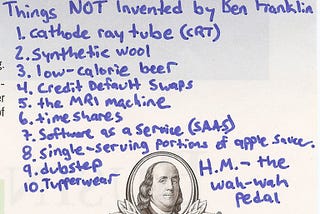 Things NOT Invented by Ben Franklin
1. cathode ray tube (CRT)
2. Synthetic wool
3. low-calorie beer
4. Credit Default Swaps
5. the MRI machine
6. time shares
7. Software as a Service (SAAS)
8. single-serving portions of apple sauce.
9. dubstep
10. Tupperwear
H.M. - the
wah-wah
pedal